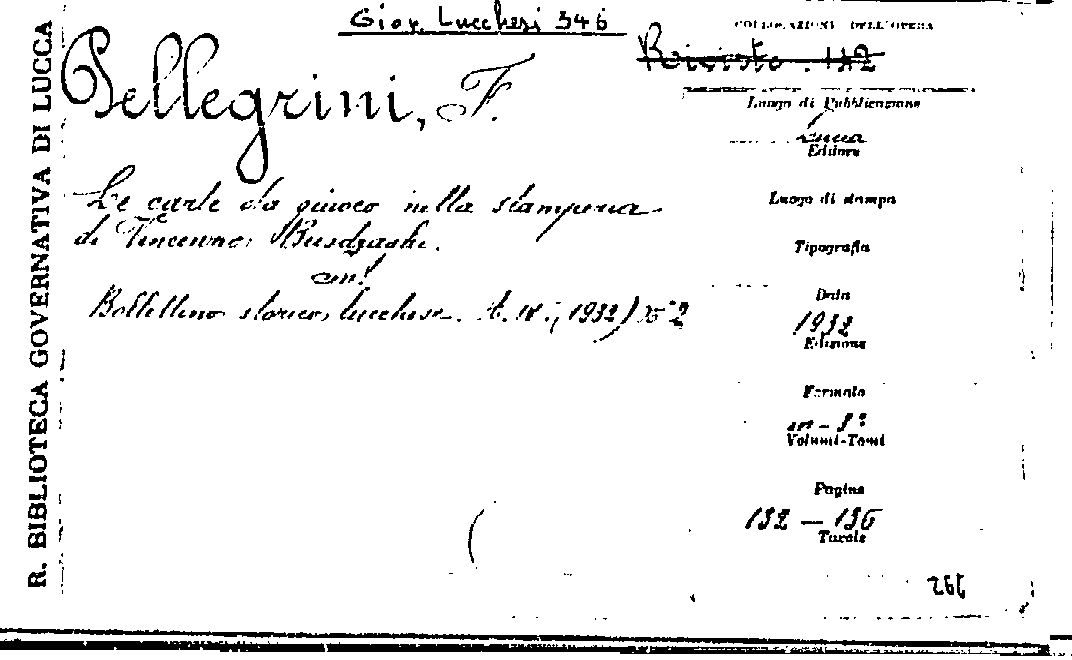 Gior. Lucchesi 346
COLLOCAZIONE DELL'OPERA
Riviste. 142
R. BIBLIOTECA GOVERNATIVA DI LUCCA
Pellegrini, F.
Luogo di Pubblicazione
Lucca
Editore
Le carte da giuoco nella stamperia
di Vincenzo Busdraghi.
Luogo di stampa
Tipografia
Bollettino storico lucchese. A. IV. (1932) N° 2
Data
1932
Edizione
Formato
in - 8°
Volumi-Tomi
Pagine
132 — 136
Tavole